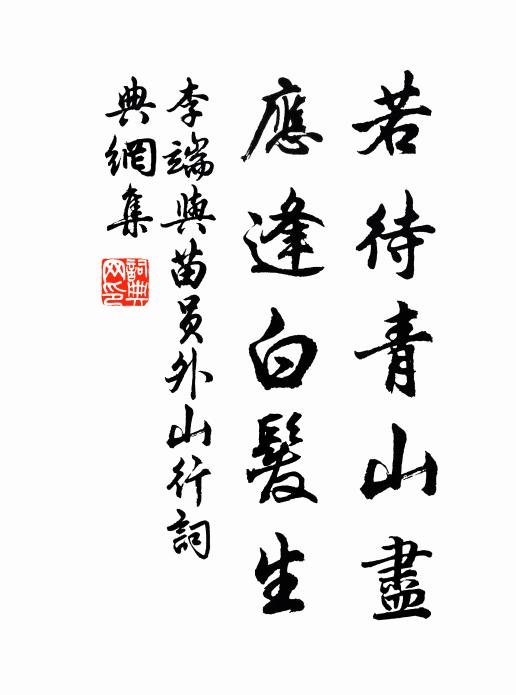 若待青山盡
應逢白髮生
李端與苗員外山行詞
典網集
詞典
网印